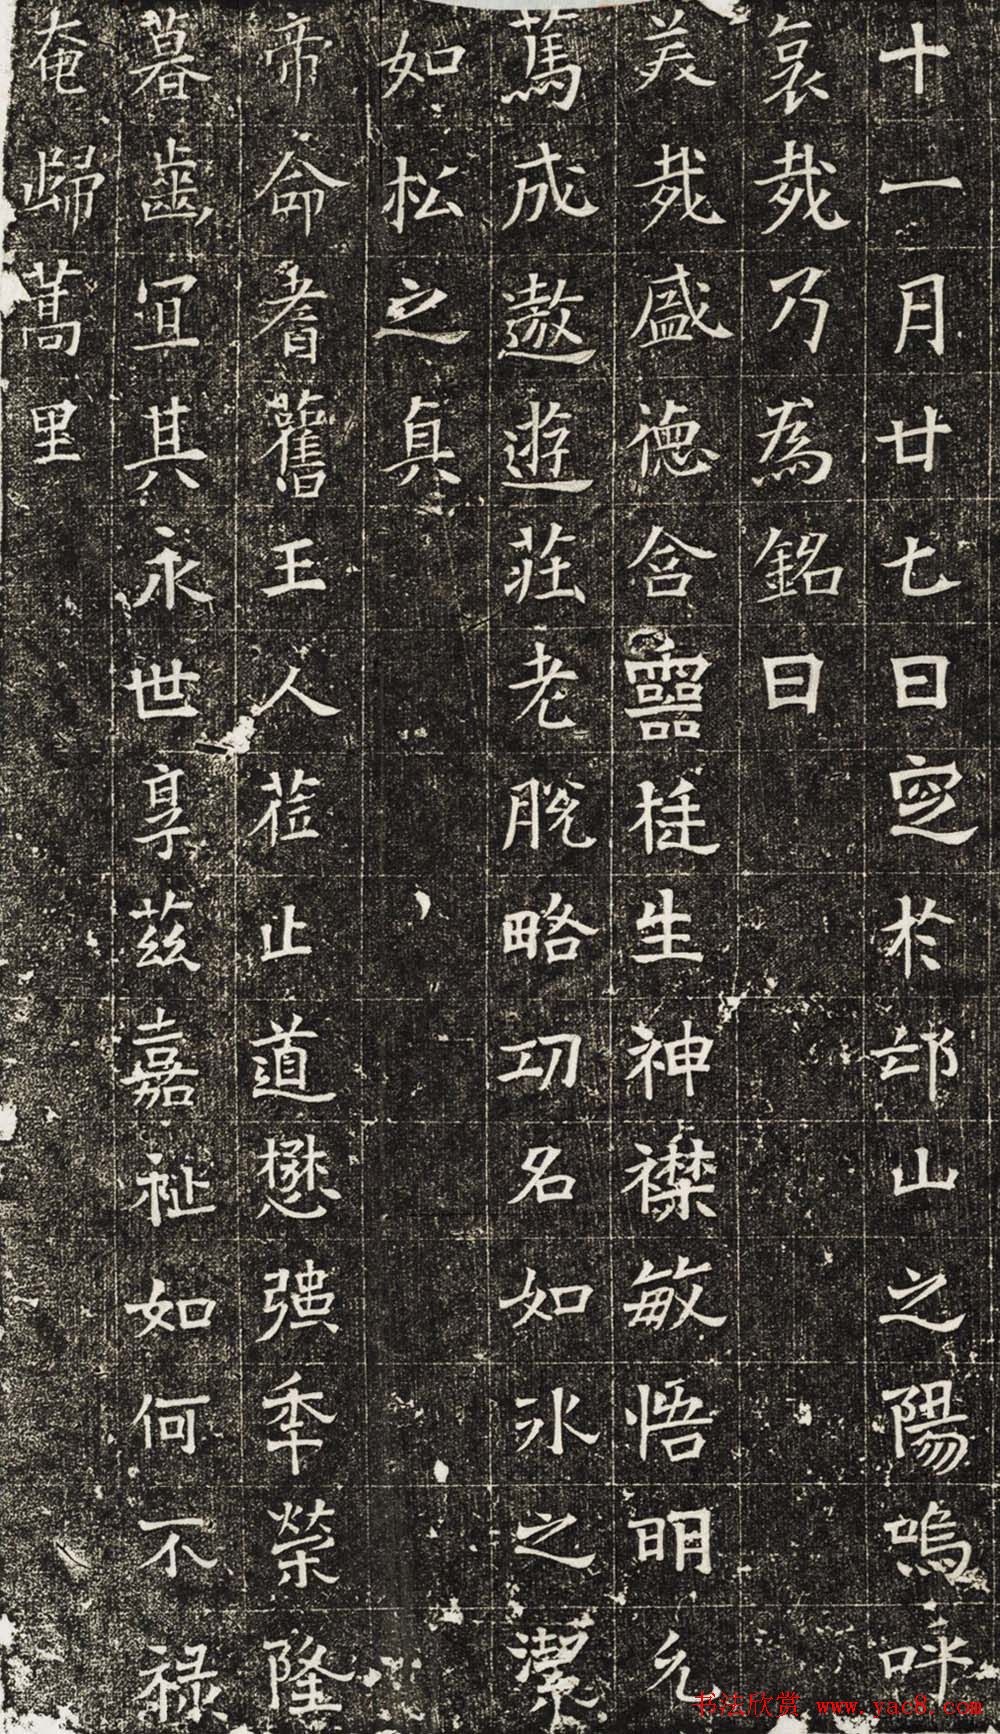 十一月廿七日窆於邙山之陽嗚呼
哀哉乃為銘曰
美哉盛德含靈挺生神襟敏悟明允
篤成遨遊莊老脫略功名如冰之潔
如松之真
帝命耆舊王人蒞止道懋强年榮隆
暮齒宜其永世享茲嘉祉如何不禄
奄歸蒿里
书法欣赏 www.yac8.com